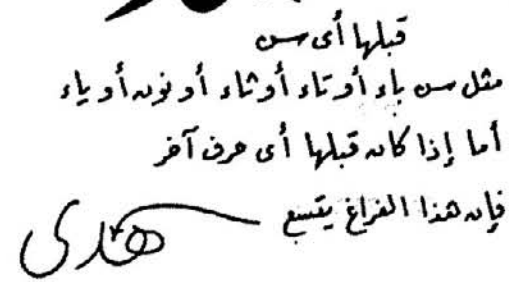 قبلها أى سن
مثل سن باء أو تاء أو ثاء أو نون أو ياء
أما إذا كان قبلها أى حرف آخر
فإن هذا الفراغ يتسع
هدى